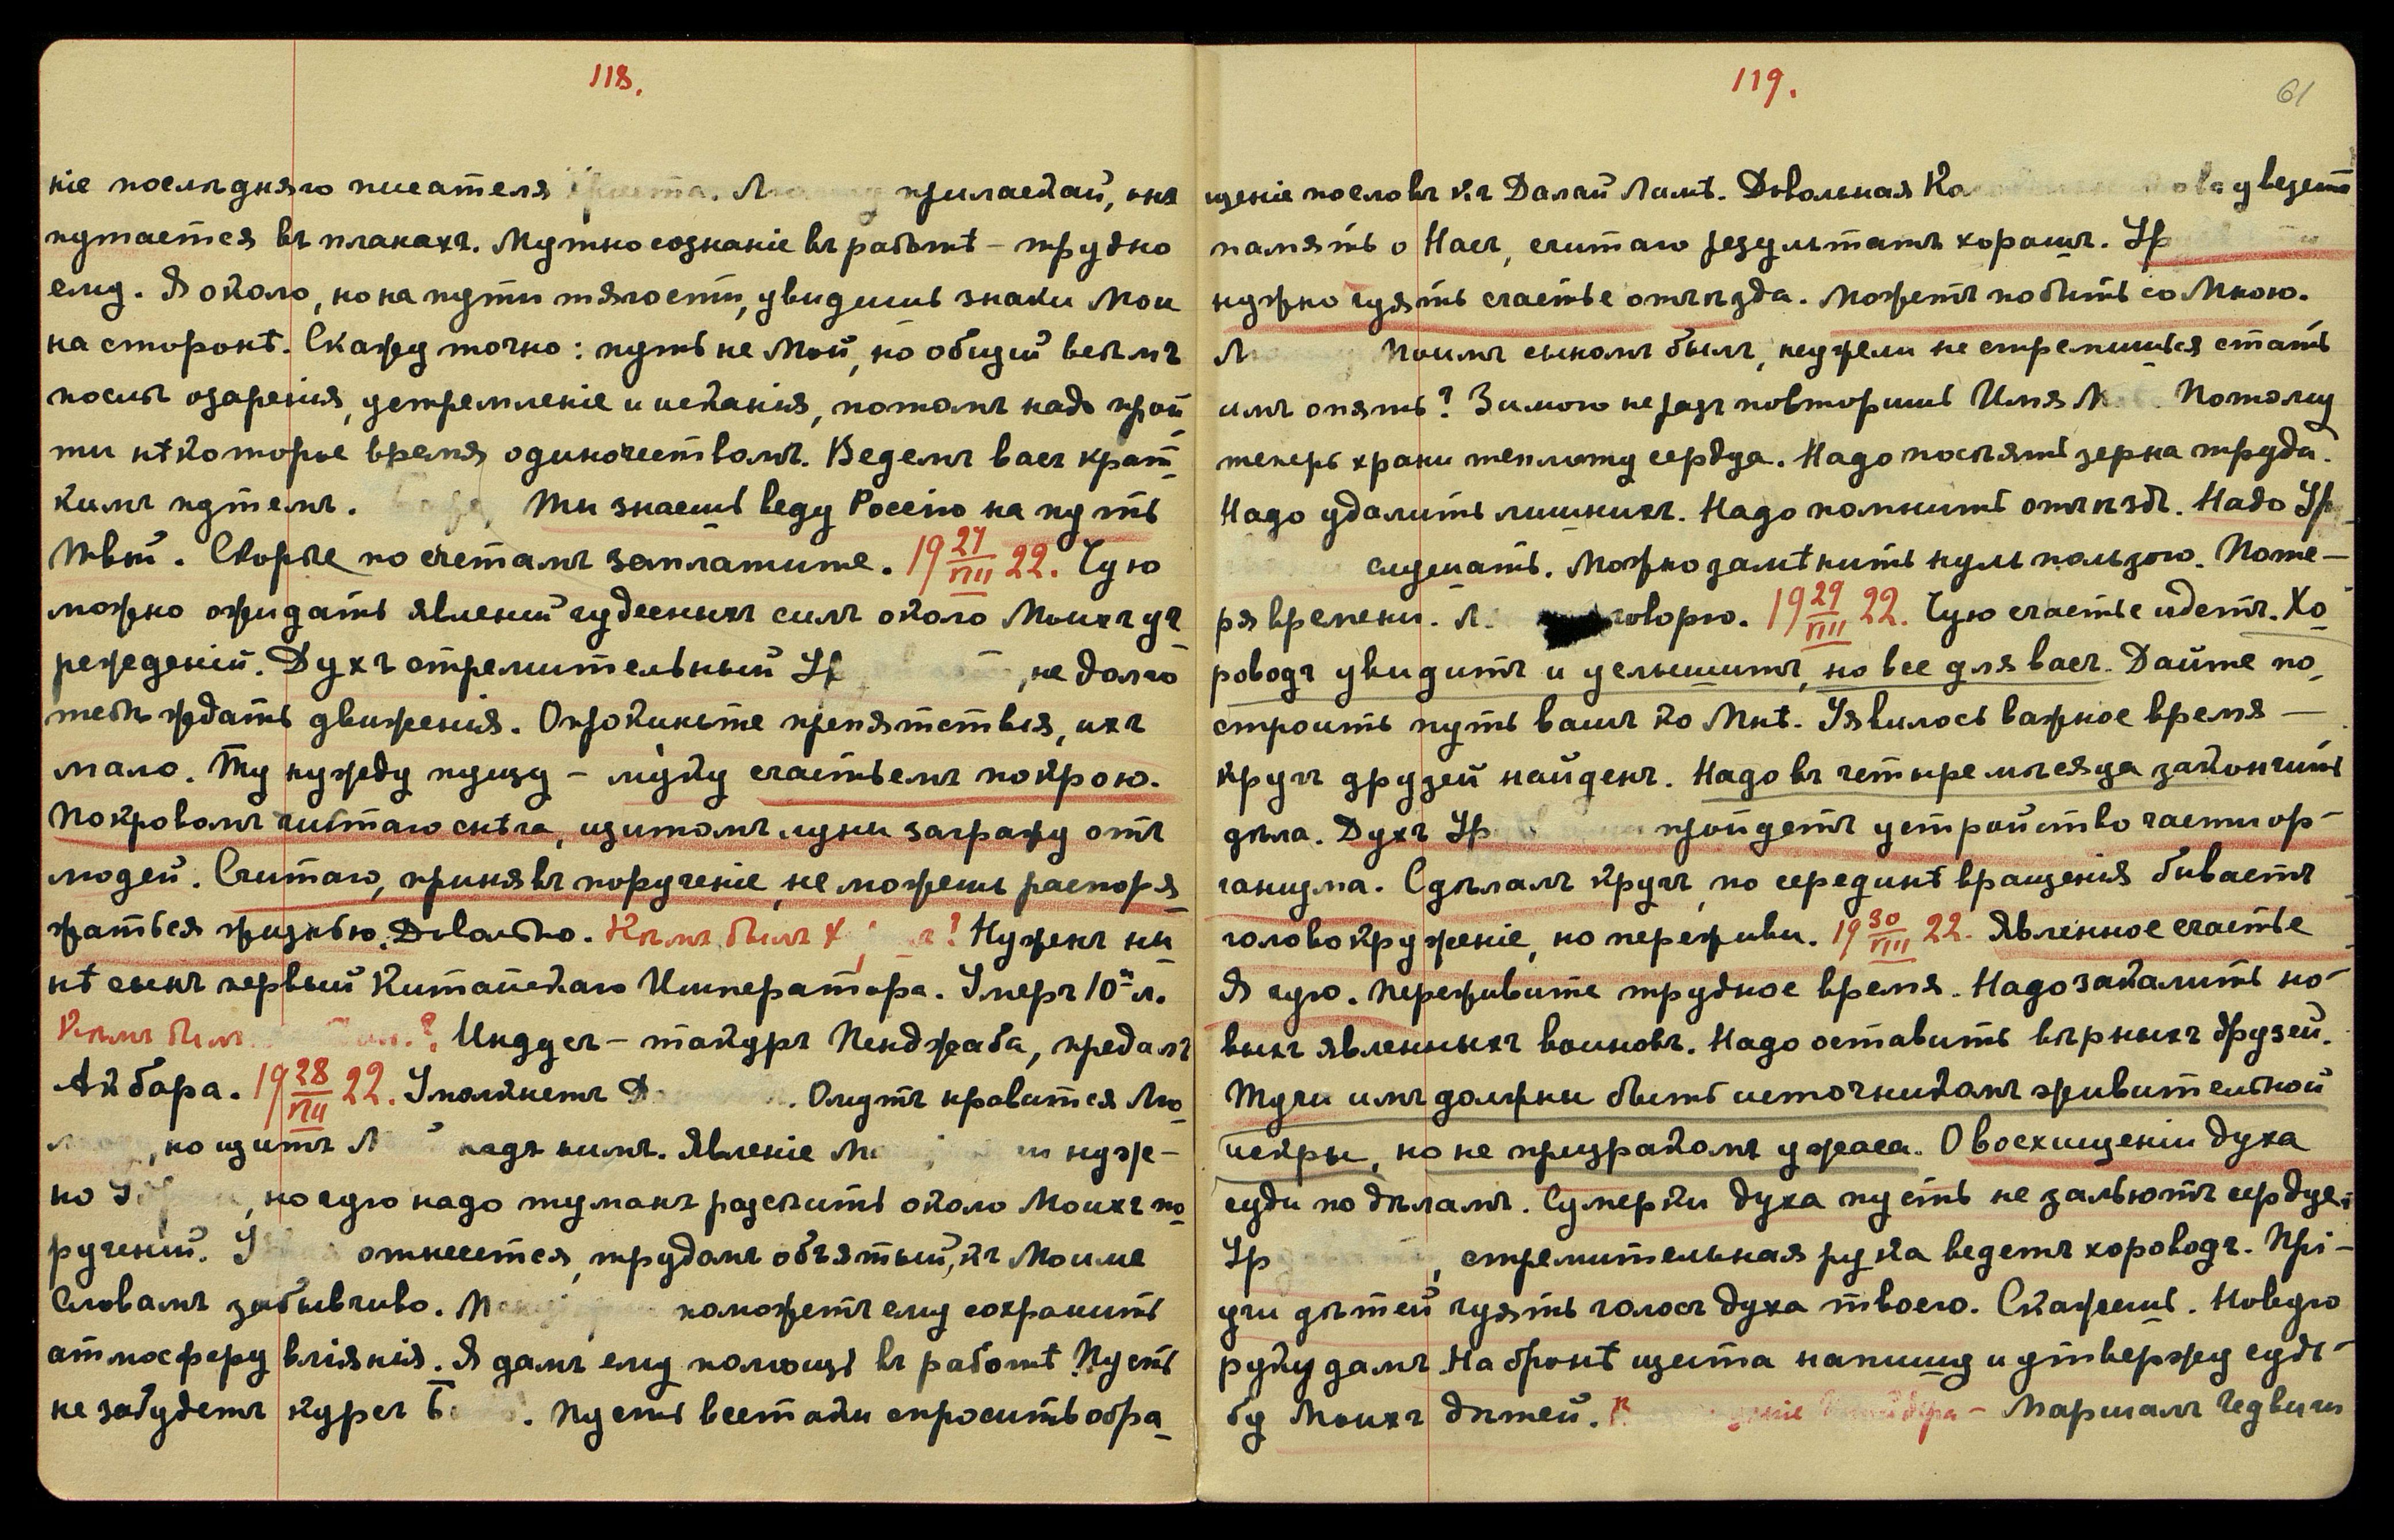 118.
ніе послѣдняго писателя приласкай, онъ
путается въ планахъ. Мутно сознаніе въ работѣ – трудно
ему. Я около, но на пути тягости, увидишь знаки Мои
на сторонѣ. Скажу точно: путь не Мой, но общій всѣмъ
послѣ озаренія, устремленіе и исканія, потомъ надо прой
ти нѣкоторое время одиночествомъ. Ведемъ васъ крат-
кимъ путемъ. Ты знаешь веду Россію на путь
Твой. Скорѣе по счетамъ заплатите. 19 27/VIII 22. Чую
можно ожидать явленій чудесныхъ силъ около Моихъ уч
режденій. Духъ стремительный , не долго
тебѣ ждать движенія. Опрокиньте препятствія, ихъ
мало. Ту нужду пущу – мýку счастьемъ покрою.
Покровомъ чистаго снѣга, щитомъ луны загражу отъ
людей. Считаю, принявъ порученіе, не можешь распоря-
жаться жизнью. Довольно. Кѣмъ былъ ? Нуженъ ны-
нѣ сынъ первый Китайскаго Императора. Умеръ 10ᵘ л.
Кѣмъ былъ ? Индусъ – такуръ Пенджаба, предалъ
Акбара. 19 28/VIII 22. Умолкнетъ . Омутъ нравится Лю
, но щитъ надъ нимъ. Явленіе нуж-
но , но чую надо туманъ разсѣить около Моихъ по-
рученій. отнесется, трудомъ объятый, къ Моимъ
Словамъ забывчиво. поможетъ ему сохранить
атмосферу вліянія. Я дамъ ему помощь въ работѣ Пусть
не забудетъ курсъ . Пусть всетаки спроситъ обра-
119.
61
щеніе пословъ къ Далай Ламѣ. Довольная увезетъ
память о Насъ, считаю результатъ хорошъ. Ур
нужно чуять счастье отъѣзда. Можетъ побыть со Мною.
Моимъ сыномъ былъ, неужели не стремишься стать
имъ опять? Зимою не разъ повторишь Имя . Потому
теперь храни теплоту сердца. Надо посѣять зерна труда.
Надо удалить лишнихъ. Надо помнить отъѣздъ. Надо Ур
слушать. Можно замѣнить нуль пользою. Поте-
ря времени. говорю. 19 29/VIII 22. Чую счастье идетъ. Хо-
роводъ увидитъ и услышитъ, но все для васъ. Дайте по-
строить путь вашъ ко Мнѣ. Уявилось важное время –
кругъ друзей найденъ. Надо въ четыре мѣсяца закончить
дѣла. Духъ Ур пройдетъ устройство части ор-
ганизма. Сдѣлалъ кругъ, по серединѣ вращенія бываетъ
головокруженіе, но переживи. 19 30/VIII 22. Явленное счастье
Я чую. Переживите трудное время. Надо закалить но-
выхъ явленныхъ воиновъ. Надо оставить вѣрныхъ друзей.
Тучи имъ должны быть источникомъ живительной
искры, но не призракомъ ужаса. О восхищеніи духа
суди по дѣламъ. Сумерки духа пусть не зальютъ сердце.
Ур , стремительная рука ведетъ хороводъ. Прі-
учи дѣтей чуять голосъ духа твоего. Скажешь. Новую
руку дамъ. На бронѣ щита напишу и утвержу судь-
бу Моихъ дѣтей. – Маршалъ Чедвигъ